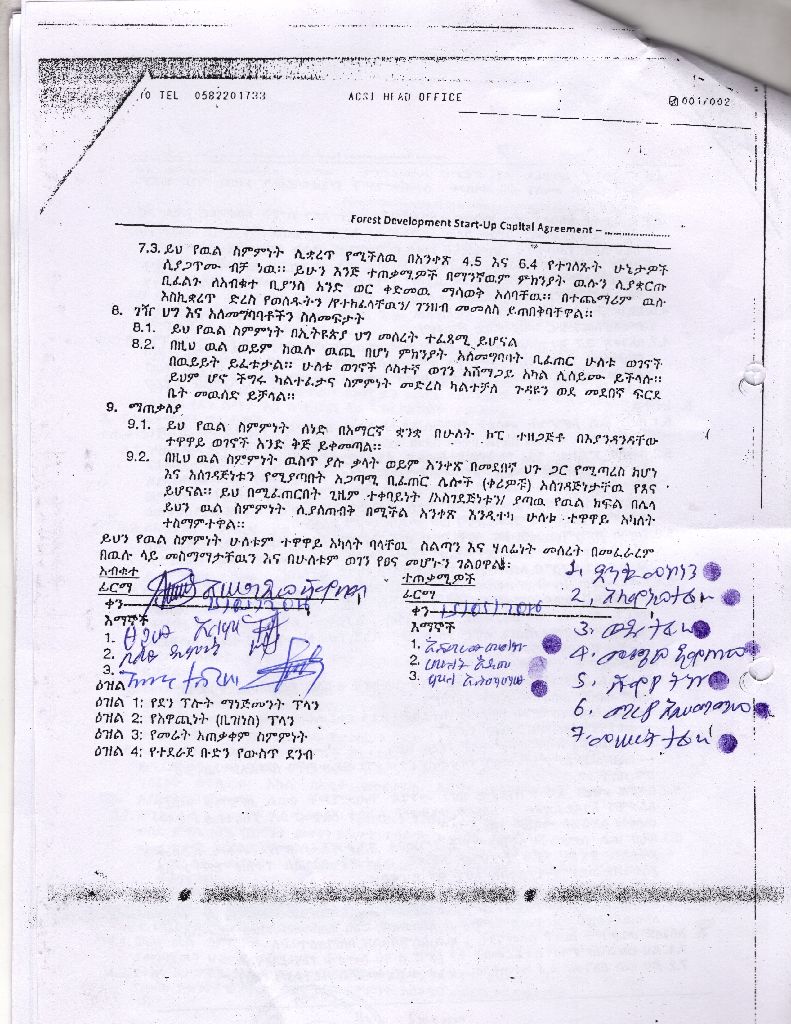 TO TEL 0582201733 ACSI HEAD OFFICE 001/002
Forest Development Start-Up Capital Agreement – ....................
7.3. ይህ የዉል ስምምነት ሊቋረጥ የሚችለዉ በአንቀጽ 4.5 እና 6.4 የተገለጹት ሁኔታዎች
ሲያጋጥሙ ብቻ ነዉ። ይሁን እንጅ ተጠቃሚዎች በማንኛዉም ምክንያት ዉሉን ሊያቋርጡ
ቢፈልጉ ለአብቁተ ቢያንስ አንድ ወር ቀድመዉ ማሳወቅ አለባቸዉ። በተጨማሪም ዉሉ
እስኪቋረጥ ድረስ የወሰዱትን /የተከፈላቸዉን/ ገንዘብ መመለስ ይጠበቅባቸዋል።
8. ገዥ ህግ እና አለመግባባቶችን ስለመፍታት
8.1. ይህ የዉል ስምምነት በኢትዩጵያ ህግ መሰረት ተፈጻሚ ይሆናል
8.2. በዚህ ዉል ወይም ከዉሉ ዉጪ በሆነ ምክንያት አለመግባባት ቢፈጠር ሁለቱ ወገኖች
በዉይይት ይፈቱታል። ሁለቱ ወገኖች ሶስተኛ ወገን አሸማጋይ አካል ሊሰይሙ ይችላሉ።
ይህም ሆኖ ችግሩ ካልተፈታና ስምምነት መድረስ ካልተቻለ ጉዳዩን ወደ መደበኛ ፍርድ
ቤት መዉሰድ ይቻላል።
9. ማጠቃለያ
9.1. ይህ የዉል ስምምነት ሰነድ በአማርኛ ቋንቋ በሁለት ኮፒ ተዘጋጅቶ በእያንዳንዳቸው
ተዋዋይ ወገኖች አንድ ቅጅ ይቀመጣል።
9.2. በዚህ ዉል ስምምነት ዉስጥ ያሉ ቃላት ወይም አንቀጽ በመደበኛ ህጉ ጋር የሚጣረስ ከሆነ
እና አስገዳጅነቱን የሚያጣበት አጋጣሚ ቢፈጠር ሌሎች (ቀሪዎቹ) አስገዳጅነታቸዉ የጸና
ይሆናል። ይህ በሚፈጠርበት ጊዜም ተቀባይነት /አስገዳጅነቱን/ ያጣዉ የዉል ክፍል በሌላ
ይህን ዉል ስምምነት ሊያስጠብቅ በሚችል አንቀጽ እንዲተካ ሁለቱ ተዋዋይ አካላት
ተስማምተዋል።
ይህን የዉል ስምምነት ሁለቱም ተዋዋይ አካላት ባላቸዉ ስልጣን እና ሃላፊነት መሰረት በመፈራረም
በዉሉ ላይ መስማማታቸዉን እና በሁለቱም ወገን የፀና መሆኑን ገልፀዋል፡
አብቁተ
ፊርማ
ቀን
እማኞች
1.
2.
3.
ተጠቃሚዎች
ፊርማ
ቀን
እማኞች
1.
2.
3.
1.
2.
3.
4.
5.
6.
7.
ዕዝል
ዕዝል 1: የደን ፕሎት ማኔጅመንት ፕላን
ዕዝል 2: የአዋጪነት (ቢዝነስ) ፕላን
ዕዝል 3: የመሬት አጠቃቀም ስምምነት
ዕዝል 4: የተደራጀ ቡድን የውስጥ ደንብ